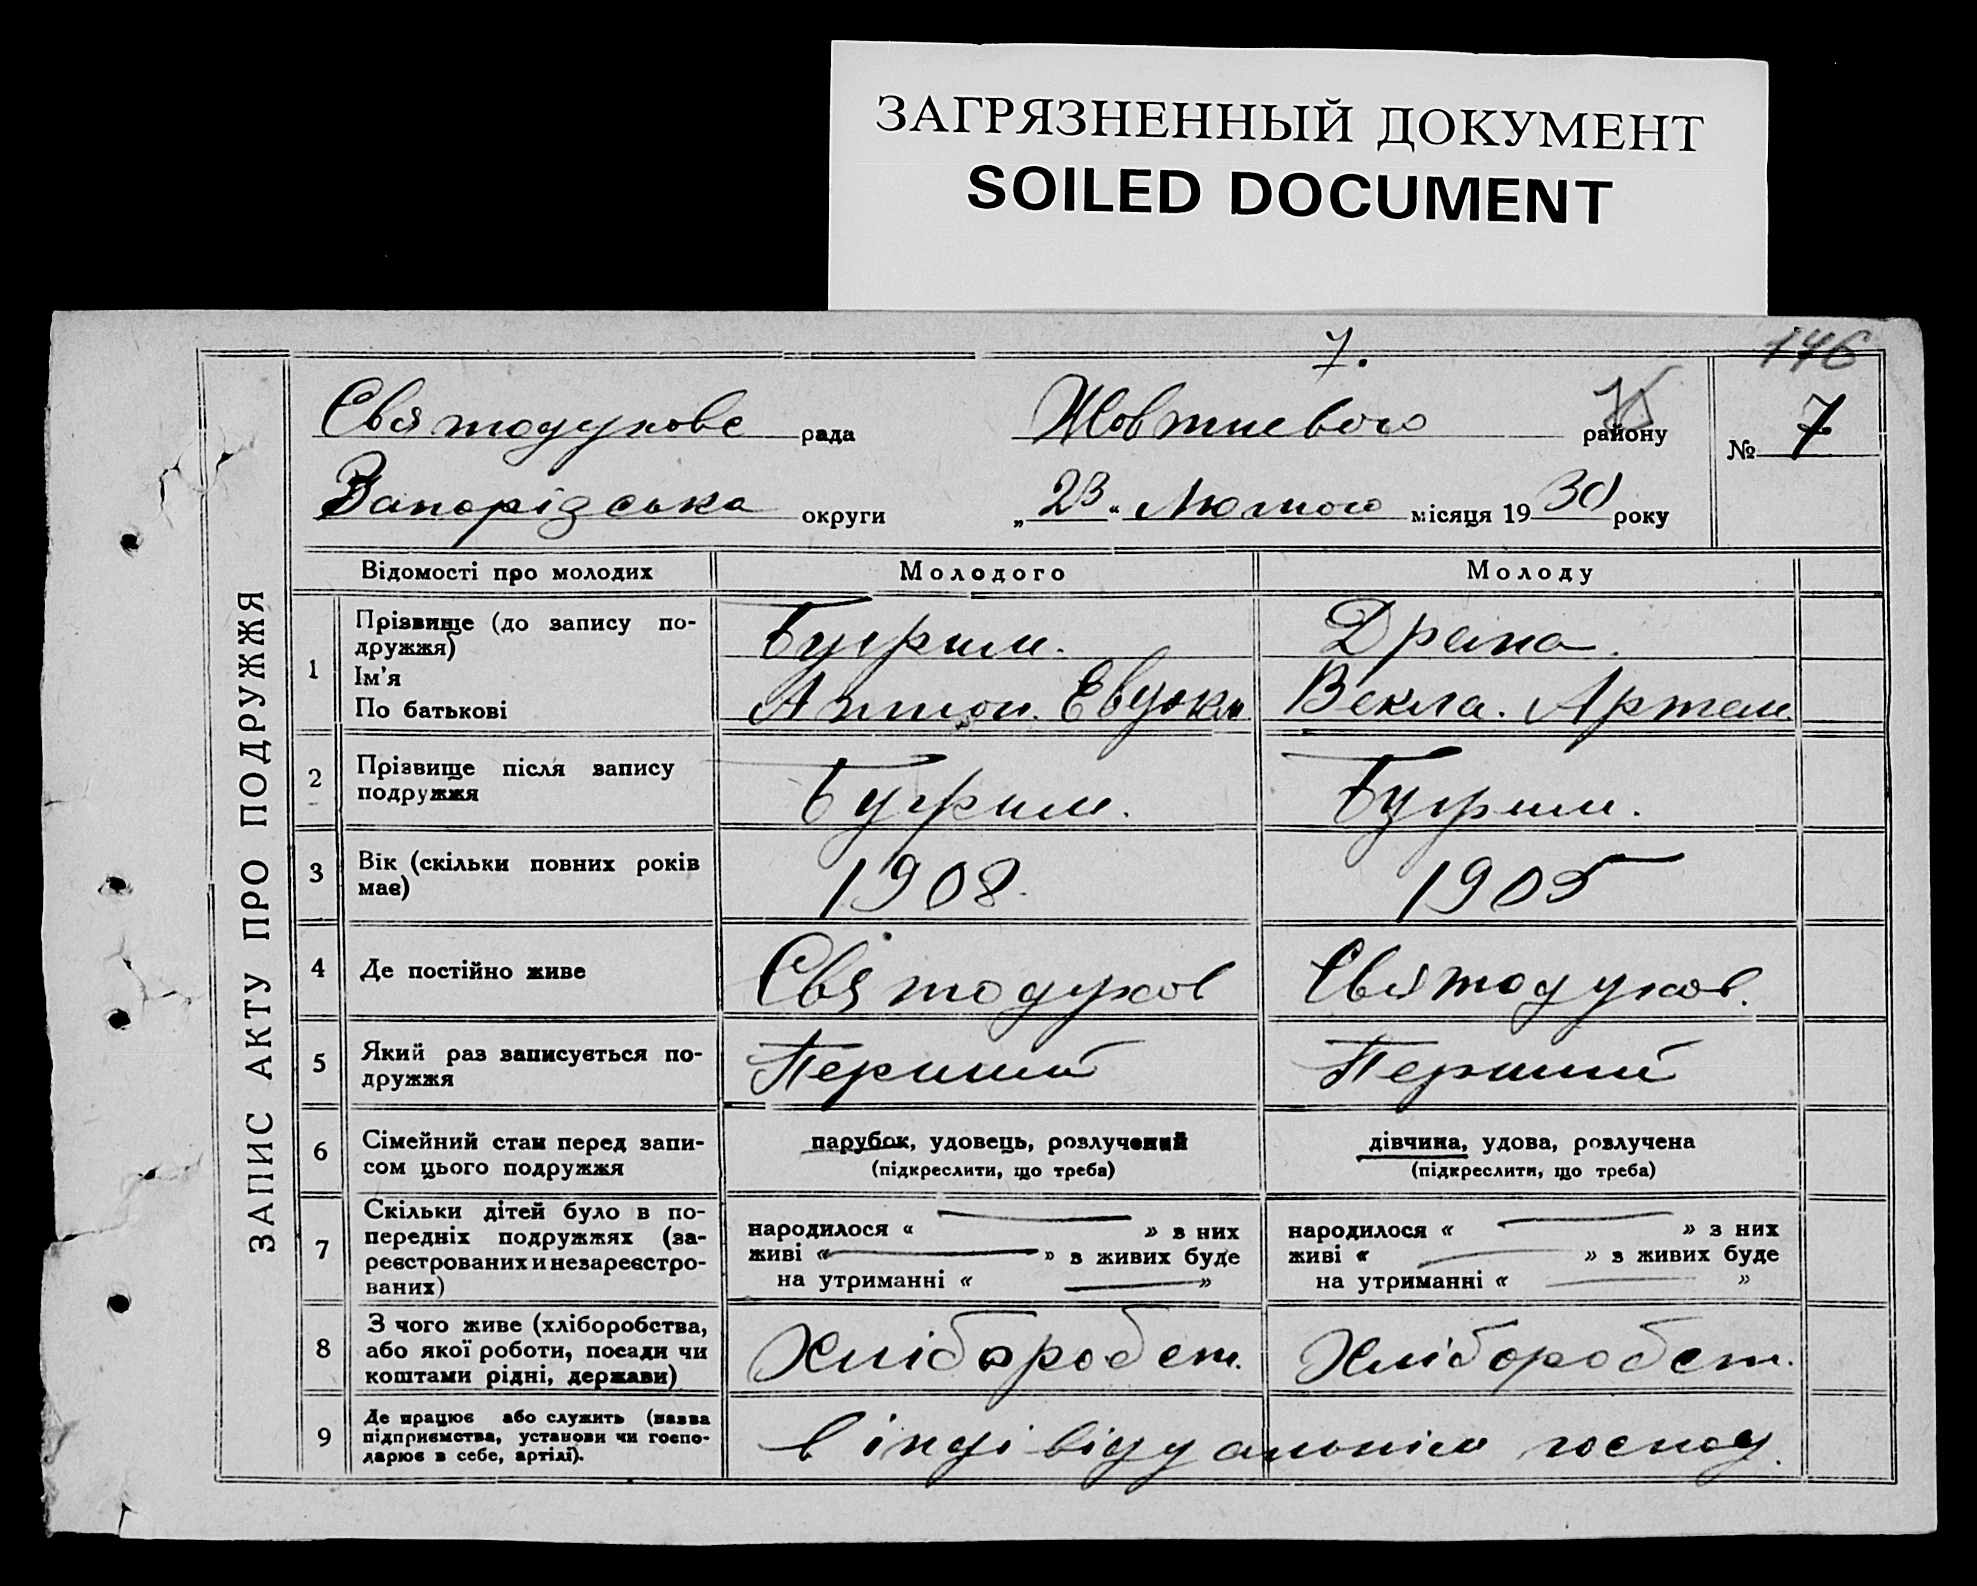 ЗАГРЯЗНЕННЫЙ ДОКУМЕНТ
SOILED DOCUMENT
7.
146
Святодухове рада Жовтневого району № 7
Запорізська округи „23“ Лютого місяця 1930 року
ЗАПИС АКТУ ПРО ПОДРУЖЖЯ
Відомості про молодих Молодого Молоду
1 Прізвище (до запису подружжя) Бугрим. Драна.
Ім'я
По батькові Антон. Евдоким Векла. Артем.
2 Прізвище після запису Бугрим. Бугрим.
подружжя
3 Вік (скільки повних років 1908. 1905
має)
4 Де постійно живе Святодухов Святодухов.
5 Який раз записується по- Перший Перший
дружжя
6 Сімейний стан перед запи- парубок, удовець, розлучений дівчина, удова, розлучена
сом цього подружжя (підкреслити, що треба) (підкреслити, що треба)
7 Скільки дітей було в по-
передніх подружжях (за-
реєстрованих и незареєстро-
ваних)
народилося « » з них народилося « » з них
живі « » з живих буде живі « » з живих буде
на утриманні « » на утриманні « »
8 З чого живе (хліборобства, Хліборобст. Хліборобст.
або якої роботи, посади чи
коштами рідні, держави)
9 Де працює або служить (назва
підприємства, установи чи госпо-
дарює в себе, артілі).
в індівідуальнім господ.